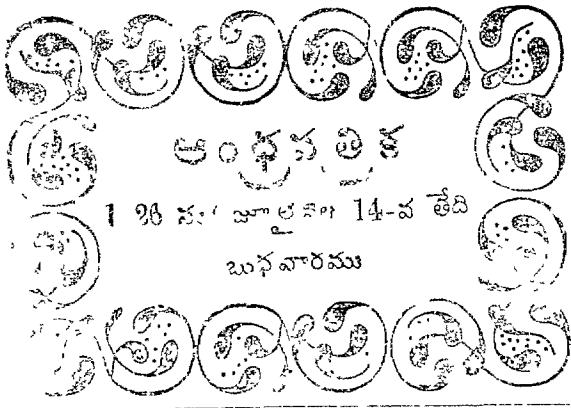 ఆంధ్రపత్రిక
1926 సం జూలై నెల 14-వ తేది
బుధవారము